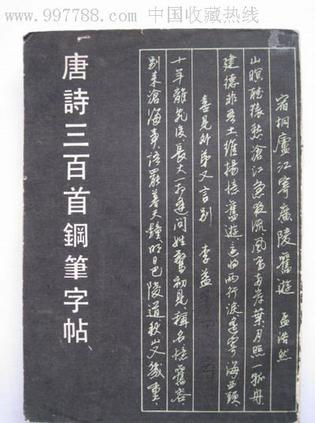 www.997788.com 中国收藏热线
唐詩三百首鋼筆字帖
宿桐廬江寄廣陵舊遊 孟浩然
山暝聽猿愁滄江急夜流風鳴兩岸葉月照一孤舟
建德非吾土維揚憶舊遊還將兩行淚遙寄海西頭
喜見外弟又言別 李益
十年離亂後長大一相逢問姓驚初見稱名憶舊容
別來滄海事語罷暮天鐘明日巴陵道秋山又幾重